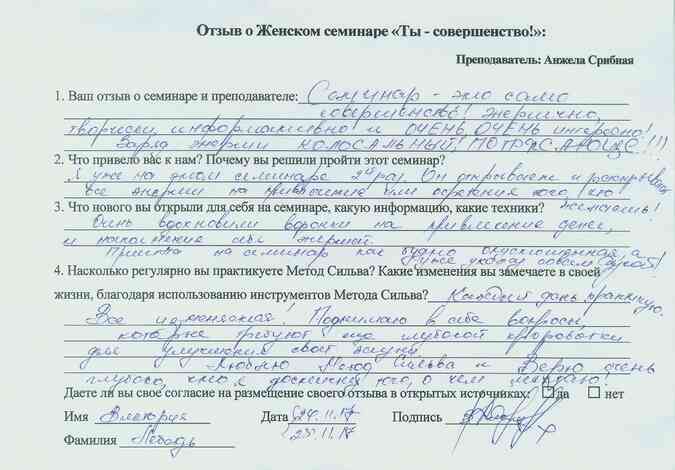 Отзыв о Женском семинаре «Ты - совершенство!»:
Преподаватель: Анжела Срибная
1. Ваш отзыв о семинаре и преподавателе: Семинар - это само
совершенство! Энергично,
творчески, информативно и ОЧЕНЬ, ОЧЕНЬ интересно!
Заряд энергии КОЛОСАЛЬНЫЙ! ПОТРЯСАЮЩЕ!!!
2. Что привело вас к нам? Почему вы решили пройти этот семинар?
Я уже на этом семинаре 2й раз. Он открывает и раскрывает
все энергии на привлечение или
3. Что нового вы открыли для себя на семинаре, какую информацию, какие техники? желаешь!
Очень вдохновили воронки на привлечение денег,
и наполнение себя энергией.
Пришла на семинар как будто опустошенная, а
уже ухожу совсем другой!
4. Насколько регулярно вы практикуете Метод Сильва? Какие изменения вы замечаете в своей
жизни, благодаря использованию инструментов Метода Сильва? Каждый день практикую.
Все изменяется! Поднимаю в себе вопросы,
которые требуют еще глубокой проработки
для улучшения своей жизни.
Люблю Метод Сильва и Верю очень
глубоко, что я достигну того, о чем мечтаю!
Даете ли вы свое согласие на размещение своего отзыва в открытых источниках: да нет
Имя Виктория Дата 24.11.17 Подпись
25.11.17
Фамилия Лебедь